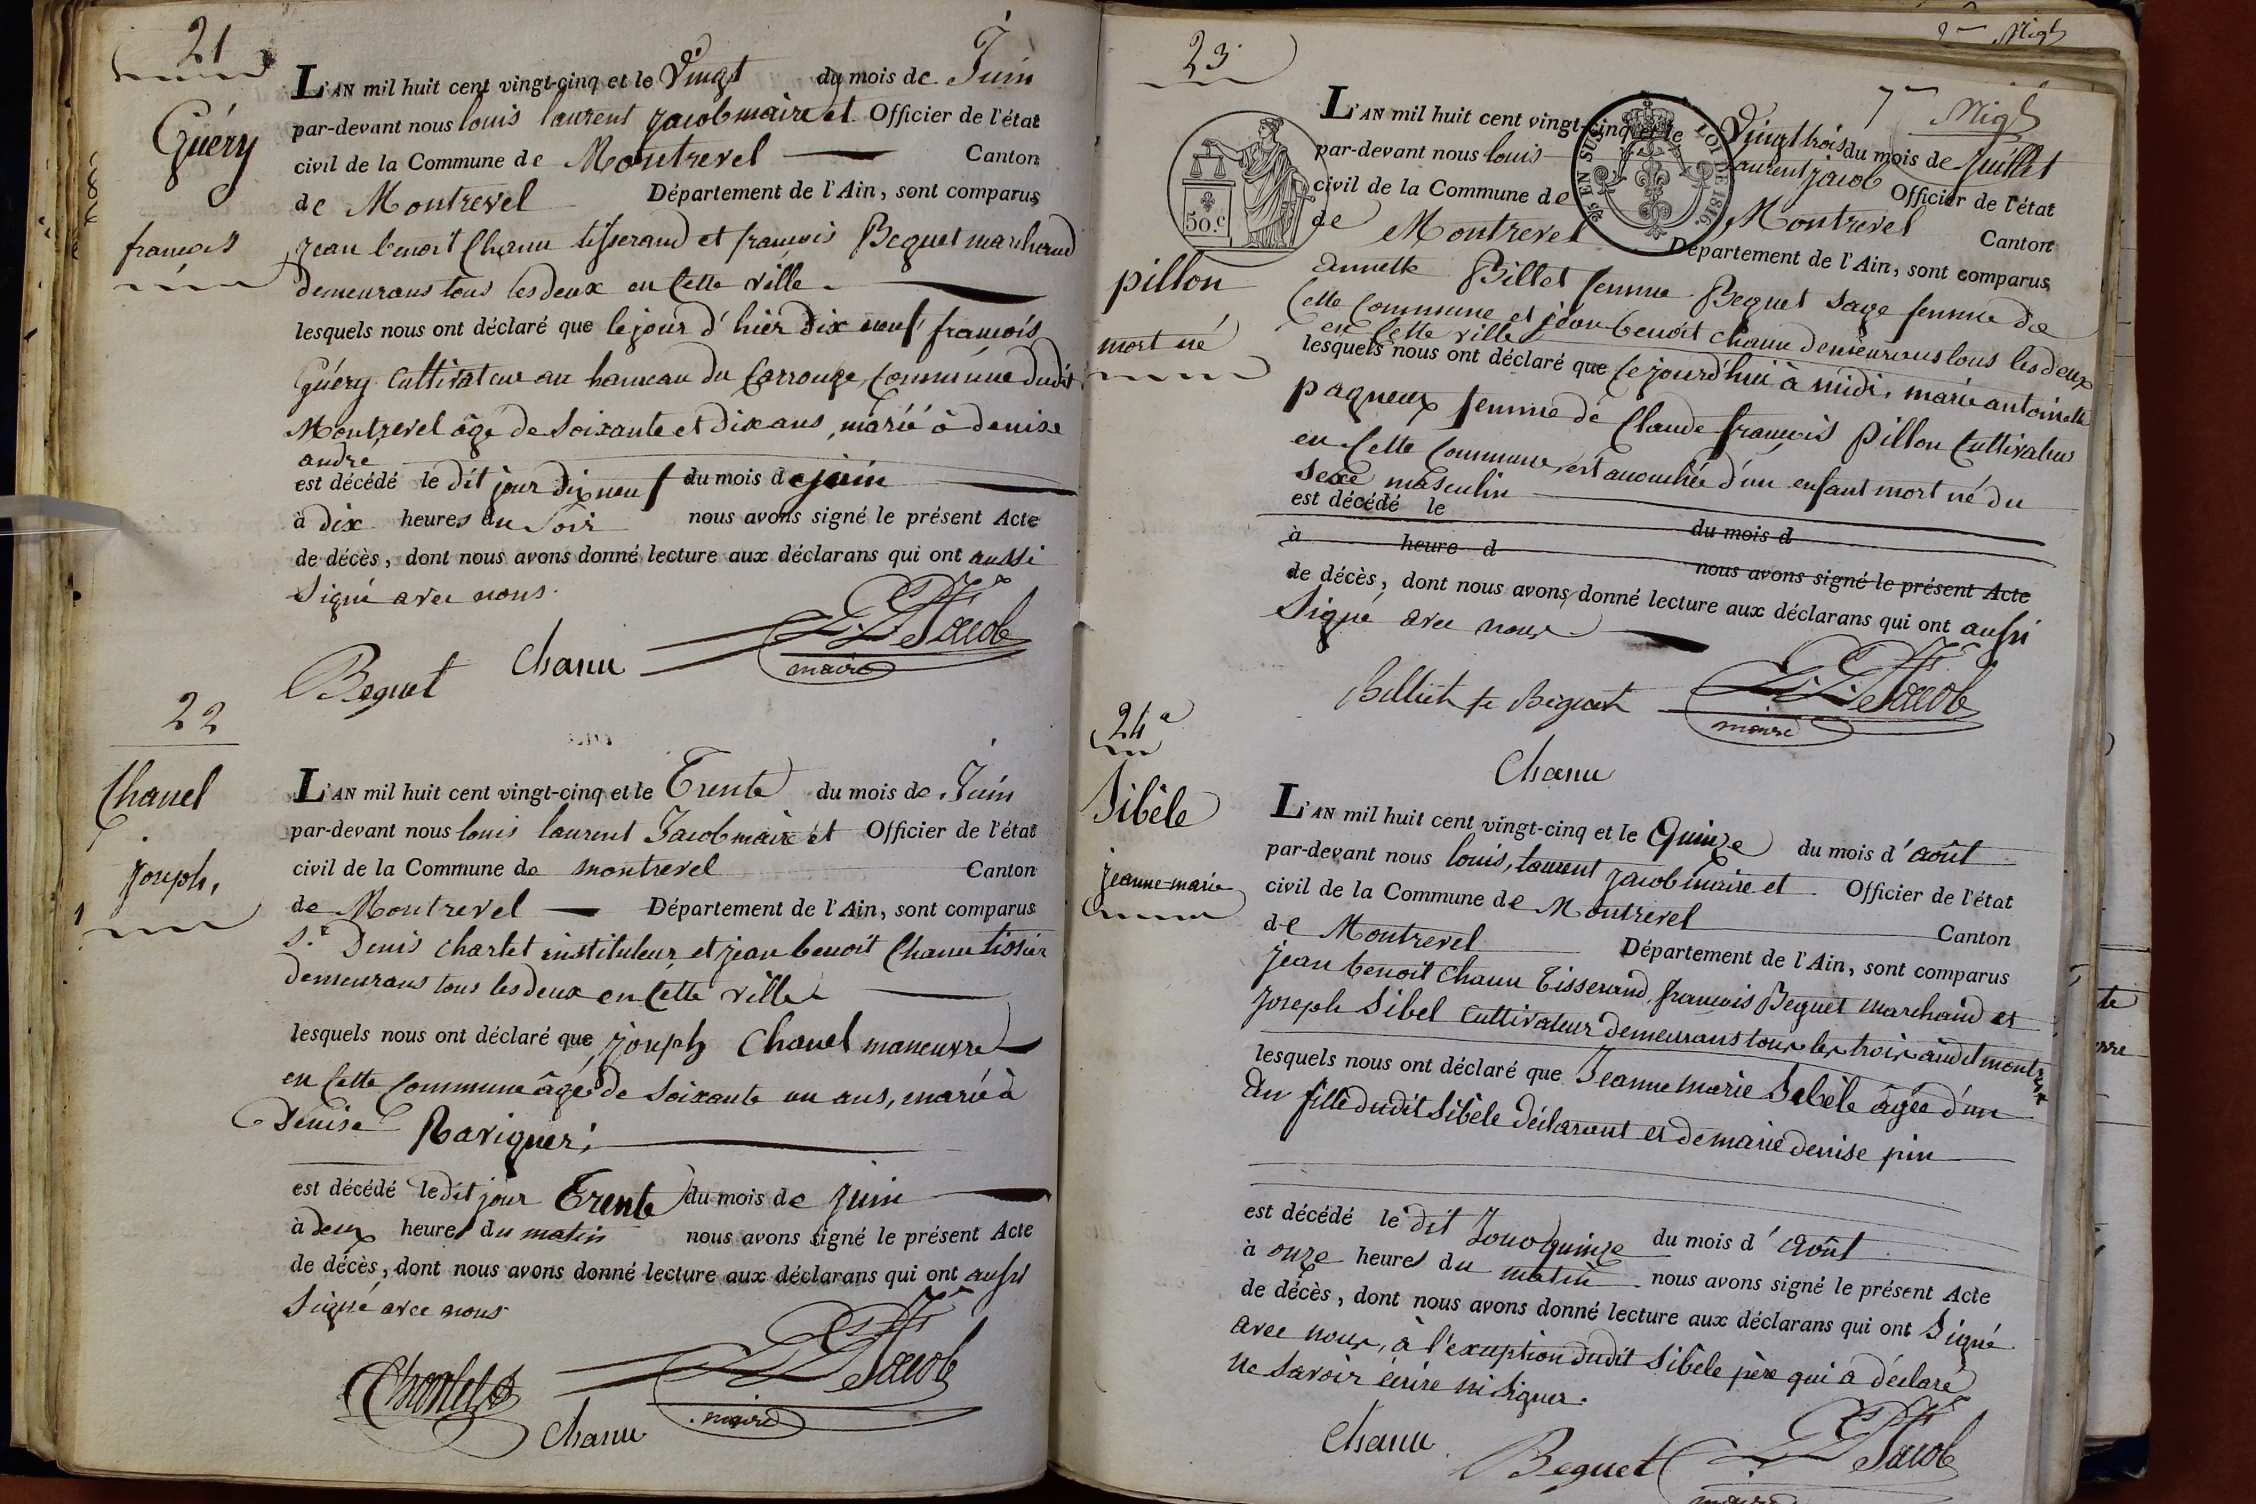 21
Guéry
françois
L'AN mil huit cent vingt-cinq et le Vingt du mois de Juin
par-devant nous louis laurent jacob maire et Officier de l'état
civil de la Commune de Montrevel Canton
de Montrevel Département de l'Ain, sont comparus
jean benoit Chanu tisserand et francois Beguet marchand
demeurans tous les deux en Cette ville
lesquels nous ont déclaré que le jour d'hier dix neuf francois
Guéry Cultivateur au hameau du Carrouge, Commune dudit
Montrevel âgé de soixante et dix ans, marié à denise
andre
est décédé le dit jour dix neuf du mois de juin
à dix heures du soir nous avons signé le présent Acte
de décès, dont nous avons donné lecture aux déclarans qui ont aussi
signé avec nous.
Beguet Chanu Jacob
maire
22
Chanel
joseph,
L'AN mil huit cent vingt-cinq et le Trente du mois de Juin
par-devant nous louis laurent Jacob maire et Officier de l'état
civil de la Commune de montrevel Canton
de Montrevel Département de l'Ain, sont comparus
Sr. Denis chartet instituteur et jean benoit Chanu tissier
demeurans tous les deux en Cette ville
lesquels nous ont déclaré que joseph Chanel maneuvre
en Cette Commune âgé de soixante un ans, marié à
Denise Raviguer;
est décédé le dit jour Trente du mois de juin
à deux heures du matin nous avons signé le présent Acte
de décès, dont nous avons donné lecture aux déclarans qui ont aussi
signé avec nous
Chartet Jacob
Chanu maire
23
pillon
mort né
50.c
EN SUS LOI DE 1816.
L'AN mil huit cent vingt-cinq et le Vingt trois du mois de juillet
par-devant nous louis laurent jacob Officier de l'état
civil de la Commune de Montrevel Canton
de Montrevel Département de l'Ain, sont comparus
annette Billet femme Beguet sage femme de
Cette Commune et jean benoit chanu demeurans tous les deux
en Cette ville
lesquels nous ont déclaré que Ce jourd'hui à midi, marie antoinette
paqueux femme de Claude françois pillon Cultivateur
en Cette Commune, est accouchée d'un enfant mort né du
sexe masculin
est décédé le du mois d
à heure d nous avons signé le présent Acte
de décès, dont nous avons donné lecture aux déclarans qui ont aussi
signé avec nous
Billiet fe Beguet Jacob
maire
Chanu
24e
Sibèle
jeanne-marie
L'AN mil huit cent vingt-cinq et le Quinze du mois d'août
par-devant nous louis, laurent jacob maire et Officier de l'état
civil de la Commune de Montrevel Canton
de Montrevel Département de l'Ain, sont comparus
jean benoit Chanu Tisserand, francois Beguet marchand et
joseph Sibel Cultivateur demeurans tous les trois audit montrevel
lesquels nous ont déclaré que Jeanne Marie Sibèle âgée d'un
an fille dudit Sibèle déclarant et de marie denise pin
est décédé le dit Jour quinze du mois d'août
à onze heures du matin nous avons signé le présent Acte
de décès, dont nous avons donné lecture aux déclarans qui ont Signé
avec nous, à l'exception dudit Sibèle père qui a déclaré
ne savoir écrire ni signer.
Chanu Beguet Jacob